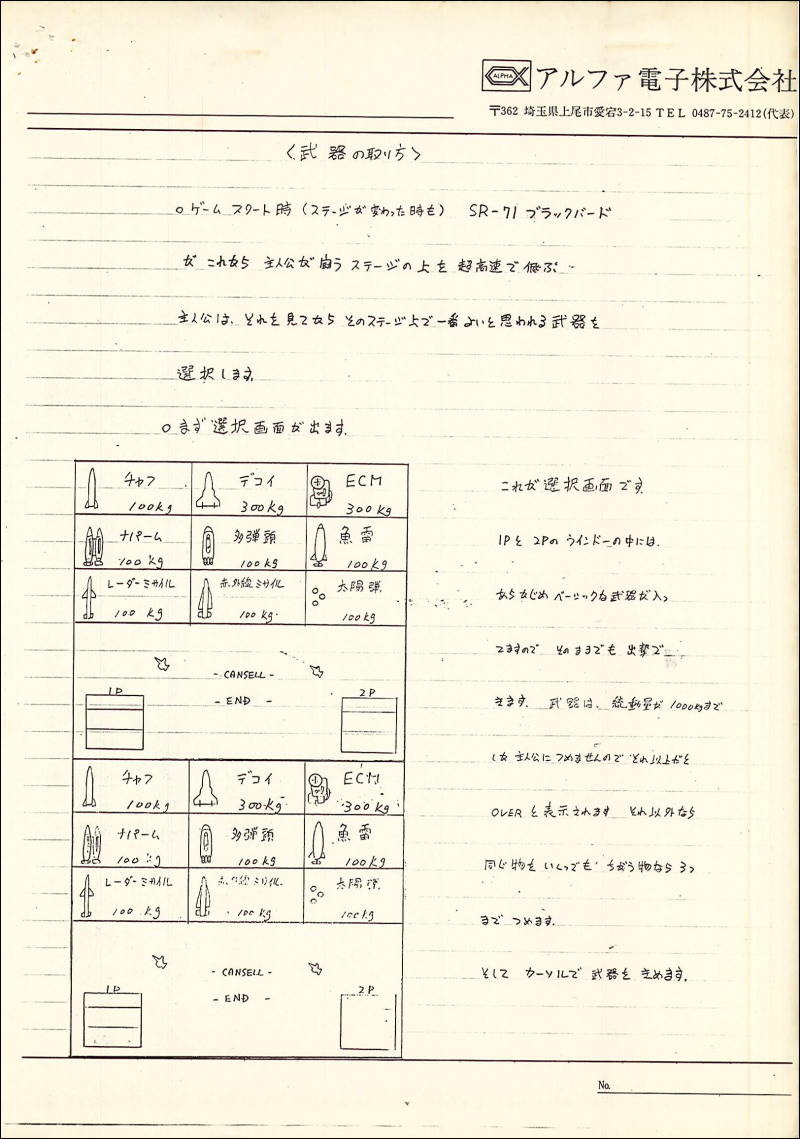 ALPHA アルファ電子株式会社
〒362 埼玉県上尾市愛宕3-2-15 TEL 0487-75-2412(代表)
〈武器の取り方〉
○ゲームスタート時(ステージが変わった時も) SR-71 ブラックバード
が これから 主人公が闘う ステージの上を 超高速で 飛ぶ
主人公は、それを見てから そのステージ上で一番よいと思われる武器を
選択します。
○まず選択画面が出ます。
チャフ 100kg
デコイ 300kg
ECM 300kg
ナパーム 100kg
多弾頭 100kg
魚雷 100kg
レーダーミサイル 100kg
赤外線ミサイル 100kg
太陽弾 100kg
- CANSELL -
- END -
1P
2P
チャフ 100kg
デコイ 300kg
ECM 300kg
ナパーム 100kg
多弾頭 100kg
魚雷 100kg
レーダーミサイル 100kg
赤外線ミサイル 100kg
太陽弾 100kg
- CANSELL -
- END -
1P
2P
これが選択画面です。
1Pと2Pのウインドーの中には、
あらかじめ ベーシックな武器が入っ
てますので そのままでも 出撃で
きます。武器は、総重量が1000kgまで
しか主人公につめませんので それ以上だと
OVERと表示されます それ以外なら
同じ物をいくつでも ちがう物なら3つ
まで つめます。
そして カーソルで 武器をきめます。
No.